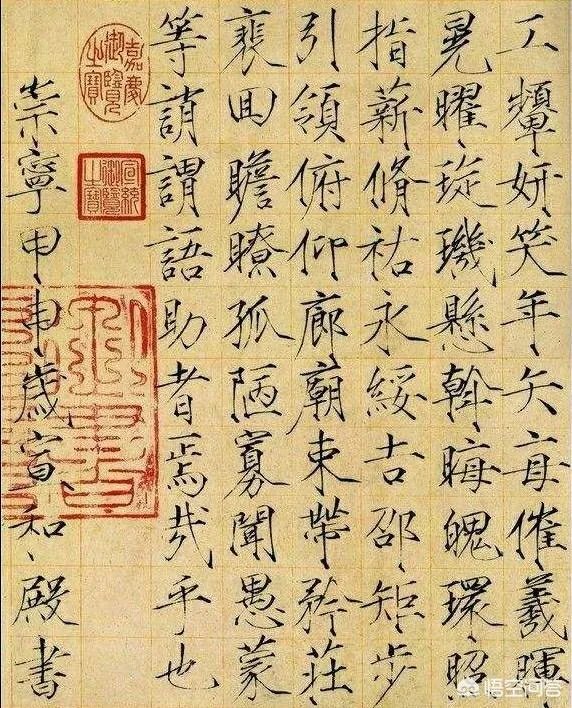 工顰妍笑年矢每催羲暉
晃曜琁璣懸斡晦魄環昭
指薪脩祐永綏吉邵矩步
引領俯仰廊廟束帶矜莊
裵回瞻瞭孤陋寡聞愚蒙
等誚謂語助者焉哉乎也
嘉慶御覽之寶
宣統御覽之寶
崇寧甲申歲宣和殿書
悟空问答